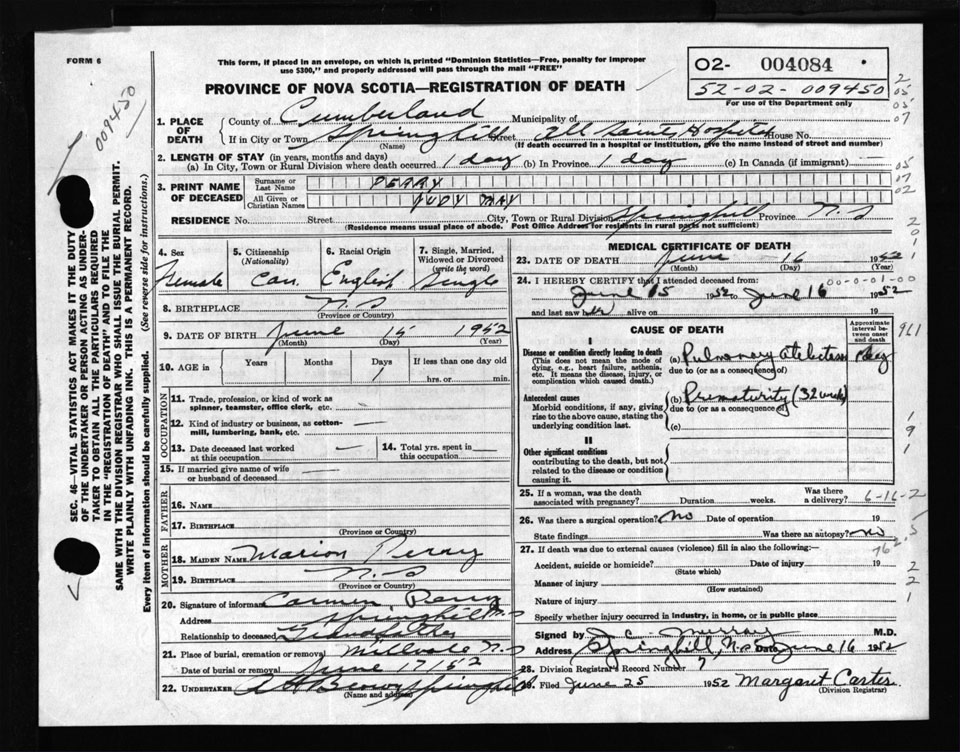 FORM 6
This form, if placed in an envelope, on which is printed "Dominion Statistics—Free, penalty for improper
use $300," and properly addressed will pass through the mail "FREE"
PROVINCE OF NOVA SCOTIA—REGISTRATION OF DEATH
O2- 004084
52-02-009450
For use of the Department only
009450
SEC. 46—VITAL STATISTICS ACT MAKES IT THE DUTY
OF THE UNDERTAKER OR PERSON ACTING AS UNDER-
TAKER TO OBTAIN ALL THE PARTICULARS REQUIRED
IN THE "REGISTRATION OF DEATH" AND TO FILE THE
SAME WITH THE DIVISION REGISTRAR WHO SHALL ISSUE THE BURIAL PERMIT.
WRITE PLAINLY WITH UNFADING INK. THIS IS A PERMANENT RECORD.
Every item of information should be carefully supplied. (See reverse side for instructions.)
1. PLACE OF DEATH
County of Cumberland Municipality of
If in City or Town Springhill Street All Saints Hospital House No.
(Name) (If death occurred in a hospital or institution, give the name instead of street and number)
2. LENGTH OF STAY (in years, months and days)
(a) In City, Town or Rural Division where death occurred 1 day (b) In Province 1 day (c) In Canada (if immigrant) —
3. PRINT NAME OF DECEASED
Surname or Last Name PERRY
All Given or Christian Names JUDY MAY
RESIDENCE No. Street City, Town or Rural Division Springhill Province N.S
(Residence means usual place of abode. Post Office Address for residents in rural parts not sufficient)
4. Sex Female
5. Citizenship (Nationality) Can
6. Racial Origin English
7. Single, Married, Widowed or Divorced (write the word) Single
8. BIRTHPLACE N.S
(Province or Country)
9. DATE OF BIRTH June 15 1952
(Month) (Day) (Year)
10. AGE in Years Months Days If less than one day old
1 hrs. or min.
OCCUPATION
11. Trade, profession, or kind of work as
spinner, teamster, office clerk, etc. —
12. Kind of industry or business, as cotton-
mill, lumbering, bank, etc. —
13. Date deceased last worked
at this occupation —
14. Total yrs. spent in
this occupation
15. If married give name of wife
or husband of deceased —
FATHER
16. NAME
17. BIRTHPLACE
(Province or Country)
MOTHER
18. MAIDEN NAME Marion Perry
19. BIRTHPLACE N.S
(Province or Country)
20. Signature of informant Perry
Address Springhill N.S
Relationship to deceased Grandfather
21. Place of burial, cremation or removal Millvale N.S
Date of burial or removal June 17/52
22. UNDERTAKER Brown Springhill
(Name and address)
MEDICAL CERTIFICATE OF DEATH
23. DATE OF DEATH June 16 1952
(Month) (Day) (Year)
24. I HEREBY CERTIFY that I attended deceased from:
June 15 1952 to June 16 1952
and last saw her alive on 19
CAUSE OF DEATH
Approximate interval between onset and death
I
Disease or condition directly leading to death
(This does not mean the mode of
dying, e.g., heart failure, asthenia,
etc. It means the disease, injury, or
complication which caused death.)
(a) Pulmonary Atelectasis 1 day
due to (or as a consequence of)
Antecedent causes
Morbid conditions, if any, giving
rise to the above cause, stating the
underlying condition last.
(b) Prematurity (32 weeks)
due to (or as a consequence of)
(c)
II
Other significant conditions
contributing to the death, but not
related to the disease or condition
causing it.
25. If a woman, was the death
associated with pregnancy? Duration weeks. Was there
a delivery? 6-16-2
26. Was there a surgical operation? No Date of operation 19
State findings Was there an autopsy? No
27. If death was due to external causes (violence) fill in also the following:—
Accident, suicide or homicide? Date of injury 19
(State which)
Manner of injury
(How sustained)
Nature of injury
Specify whether injury occurred in industry, in home, or in public place
Signed by J. C. Murray M.D.
Address Springhill, N.S Date June 16 1952
28. Division Registrar's Record Number 7
29. Filed June 25 1952 Margaret Carter
(Division Registrar)